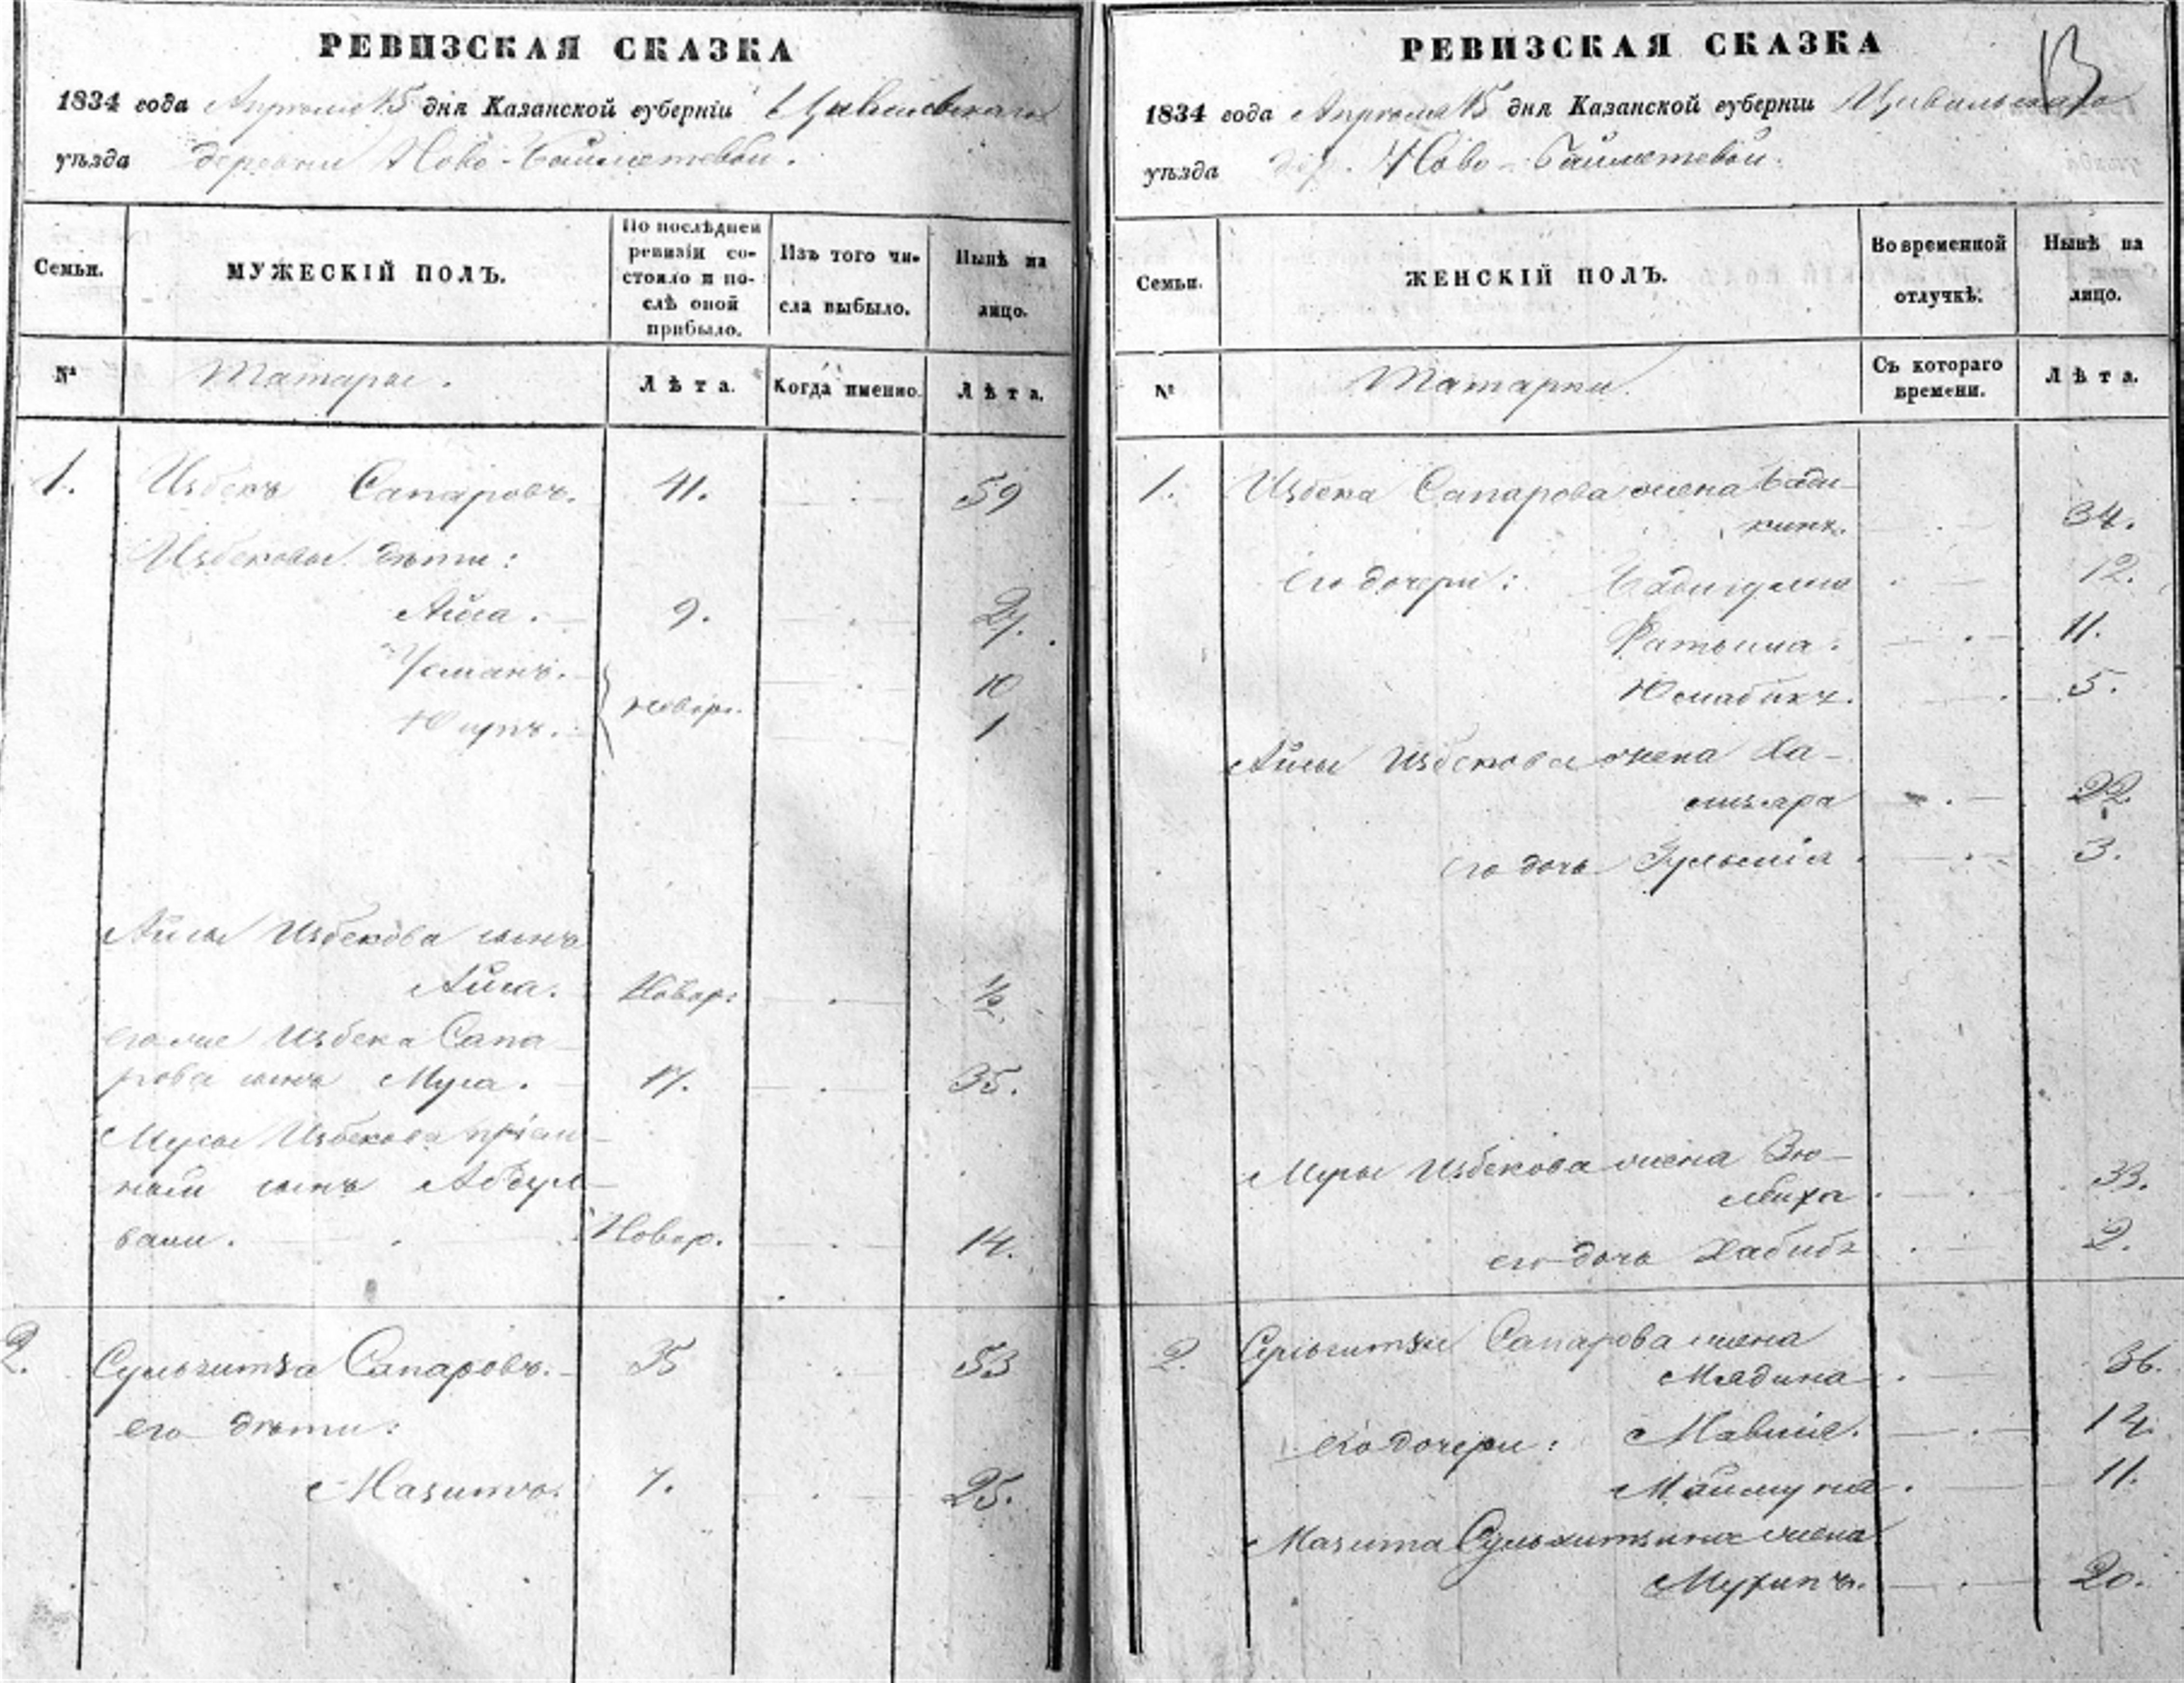 РЕВИЗСКАЯ СКАЗКА
1834 года Апреля 15 дня Казанской губерніи Цивильскаго
уѣзда деревни Ново-Байметевой.
Семьи.
МУЖЕСКІЙ ПОЛЪ.
По послѣдней
ревизіи со-
стояло и по-
слѣ оной
прибыло.
Изъ того чи-
сла выбыло.
Нынѣ на
лицо.
№
Татары.
Лѣта.
Когда именно.
Лѣта.
1. Избекъ Сапаровъ. 41. 59
Избековы дѣти:
Айса. 9. 27.
Усманъ. 10
новор.
Юнусъ. 1
Айсы Избекова сынъ
Айса. Новор: ½
его же Избека Сапа-
рова сынъ Муса. 17. 35.
Мусы Избекова пріем-
ный сынъ Абдул-
вали. Новор. 14.
2. Сапаровъ. 35 53
его дѣти:
Мазитъ. 7. 25.
РЕВИЗСКАЯ СКАЗКА
13
1834 года Апреля 15 дня Казанской губерніи Цивильскаго
уѣзда дер. Ново-Байметевой.
Семьи.
ЖЕНСКІЙ ПОЛЪ.
Во временной
отлучкѣ.
Нынѣ на
лицо.
№
Татарки.
Съ котораго
времени.
Лѣта.
1. Избека Сапарова жена Бади-
34.
его дочери: 12.
Фатыма. 11.
Юмабикъ. 5.
Айсы Избекова жена Ха-
22.
его дочь 3.
Мусы Избекова жена Зю-
33.
его дочь Хабиба 2.
2. Сапарова жена
Мадина 36.
его дочери: 14.
Маймуна 11.
Мазита жена
20.